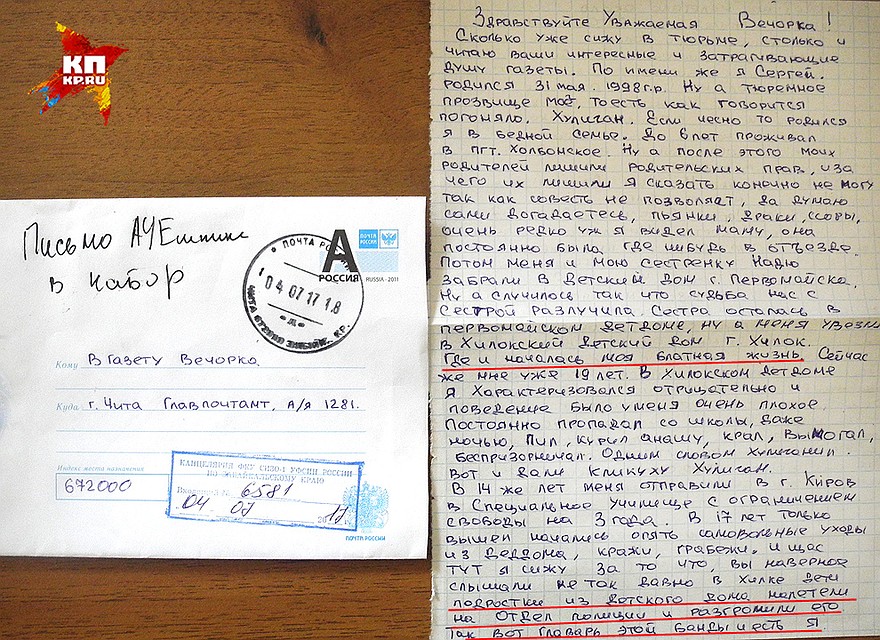 КП
KP.RU
Письмо АУЕшника
в набор
ПОЧТА РОССИИ
А
РОССИЯ
RUSSIA - 2011
ПОЧТА РО
04 07 17 18
Кому В Газету Вечорка
Куда г. Чита Главпочтамт, А/я 1281.
Индекс места назначения
672000
КАНЦЕЛЯРИЯ ФКУ СИЗО-1 УФСИН РОССИИ
ПО ЗАБАЙКАЛЬСКОМУ КРАЮ
№ 6581
04 07 2017
ПОЧТА РОССИИ
Здравствуйте Уважаемая Вечорка!
Сколько уже сижу в тюрьме, столько и
читаю ваши интересные и затрагивающие
душу газеты. По имени же я Сергей.
родился 31 мая. 1998г.р. Ну а тюремное
прозвище моё, тоесть как говорится
погоняло, Хулиган. Если чесно то родился
я в бедной семье. До 6 лет проживал
в пгт. Холбонское. Ну а после этого моих
родителей лишили родительских прав, иза
чего их лишили я сказать конечно не могу
так как совесть не позволяет, да думаю
сами догадаетесь, пьянки, драки, ссоры,
очень редко уж я видел маму, она
постоянно была где нибудь в отъезде.
Потом меня и мою сестренку Надю
забрали в Детский Дом г. Первомайска.
Ну а случилось так что судьба нас с
сестрой разлучила. Сестра осталась в
первомайском детдоме, ну а меня увезли
в Хилокский детский дом г. Хилок.
Где и началась моя блатная жизнь. Сейчас
же мне уже 19 лет. В Хилокском детдоме
я Характеризовался отрицательно и
поведение было у меня очень плохое.
Постоянно пропадал со школы, даже
ночью, Пил, курил анашу, крал, вымогал,
беспризорничал. Одним словом Хулиганил.
Вот и дали кликуху Хулиган.
В 14 же лет меня отправили в г. Киров
в Специальное Училище с ограничением
свободы на 3 года. В 17 лет только
вышел начались опять самовольные уходы
из Деддома, кражи, грабежи. И щас
тут я сижу за то что, вы наверное
слышали не так давно в Хилке дети
подростки из детского дома налетели
на отдел полиции и разгромили его
Так вот главарь этой банды и есть я.